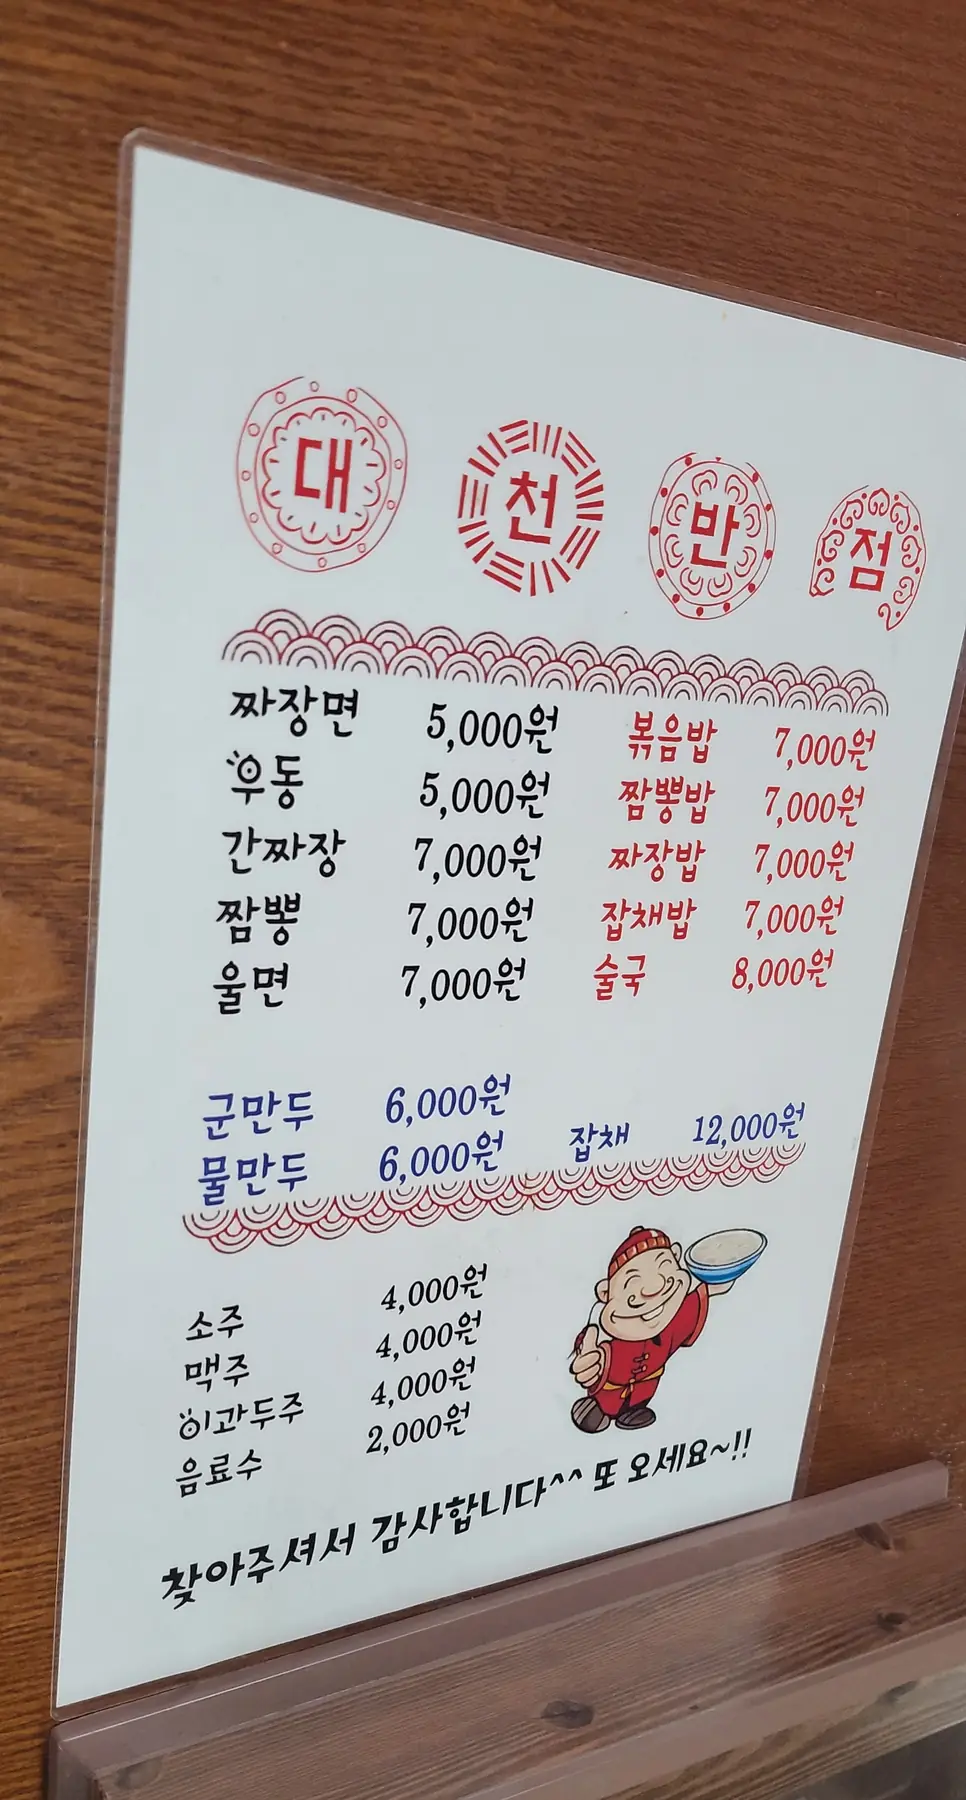 대천반점
짜장면 5,000원 볶음밥 7,000원
우동 5,000원 짬뽕밥 7,000원
간짜장 7,000원 짜장밥 7,000원
짬뽕 7,000원 잡채밥 7,000원
울면 7,000원 술국 8,000원
군만두 6,000원
물만두 6,000원 잡채 12,000원
소주 4,000원
맥주 4,000원
이과두주 4,000원
음료수 2,000원
찾아주셔서 감사합니다^^ 또 오세요~!!